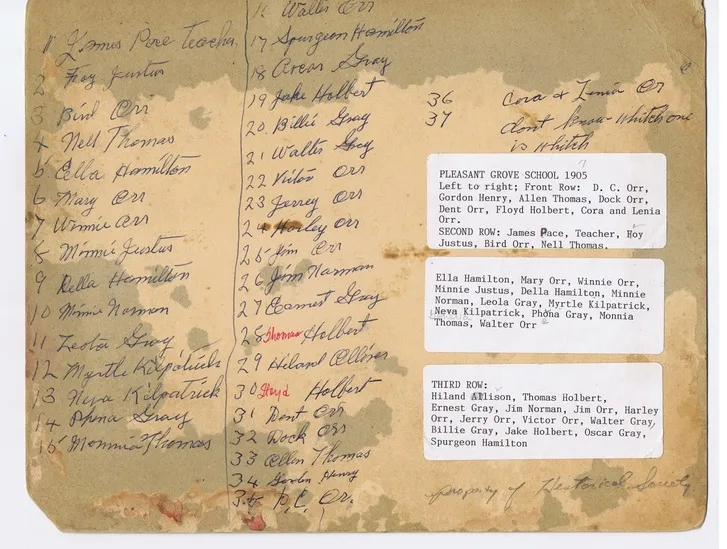 1 James Pace Teacher
2 Foy Justus
3 Bird Orr
4 Nell Thomas
5 Ella Hamilton
6 Mary Orr
7 Winnie Orr
8 Minnie Justus
9 Della Hamilton
10 Minnie Norman
11 Leola Gray
12 Myrtle Kilpatrick
13 Neva Kilpatrick
14 Phona Gray
15 Monnia Thomas
16 Walter Orr
17 Spurgeon Hamilton
18 Oscar Gray
19 Jake Holbert
20 Billie Gray
21 Walter Gray
22 Victor Orr
23 Jerrey Orr
24 Harley Orr
25 Jim Orr
26 Jim Norman
27 Earnest Gray
28 Thomas Holbert
29 Hiland
30 Floyd Holbert
31 Dent Orr
32 Dock Orr
33 Allen Thomas
34 Gorden Henry
35 D.C. Orr
36 Cora & Lenia Or
37 dont know whitch one
is whitch
PLEASANT GROVE SCHOOL 1905
Left to right; Front Row: D. C. Orr,
Gordon Henry, Allen Thomas, Dock Orr,
Dent Orr, Floyd Holbert, Cora and Lenia
Orr.
SECOND ROW: James Pace, Teacher, Hoy
Justus, Bird Orr, Nell Thomas.
Ella Hamilton, Mary Orr, Winnie Orr,
Minnie Justus, Della Hamilton, Minnie
Norman, Leola Gray, Myrtle Kilpatrick,
Neva Kilpatrick, Phona Gray, Monnia
Thomas, Walter Orr
THIRD ROW:
Hiland Allison, Thomas Holbert,
Ernest Gray, Jim Norman, Jim Orr, Harley
Orr, Jerry Orr, Victor Orr, Walter Gray,
Billie Gray, Jake Holbert, Oscar Gray,
Spurgeon Hamilton
property of Historical Society